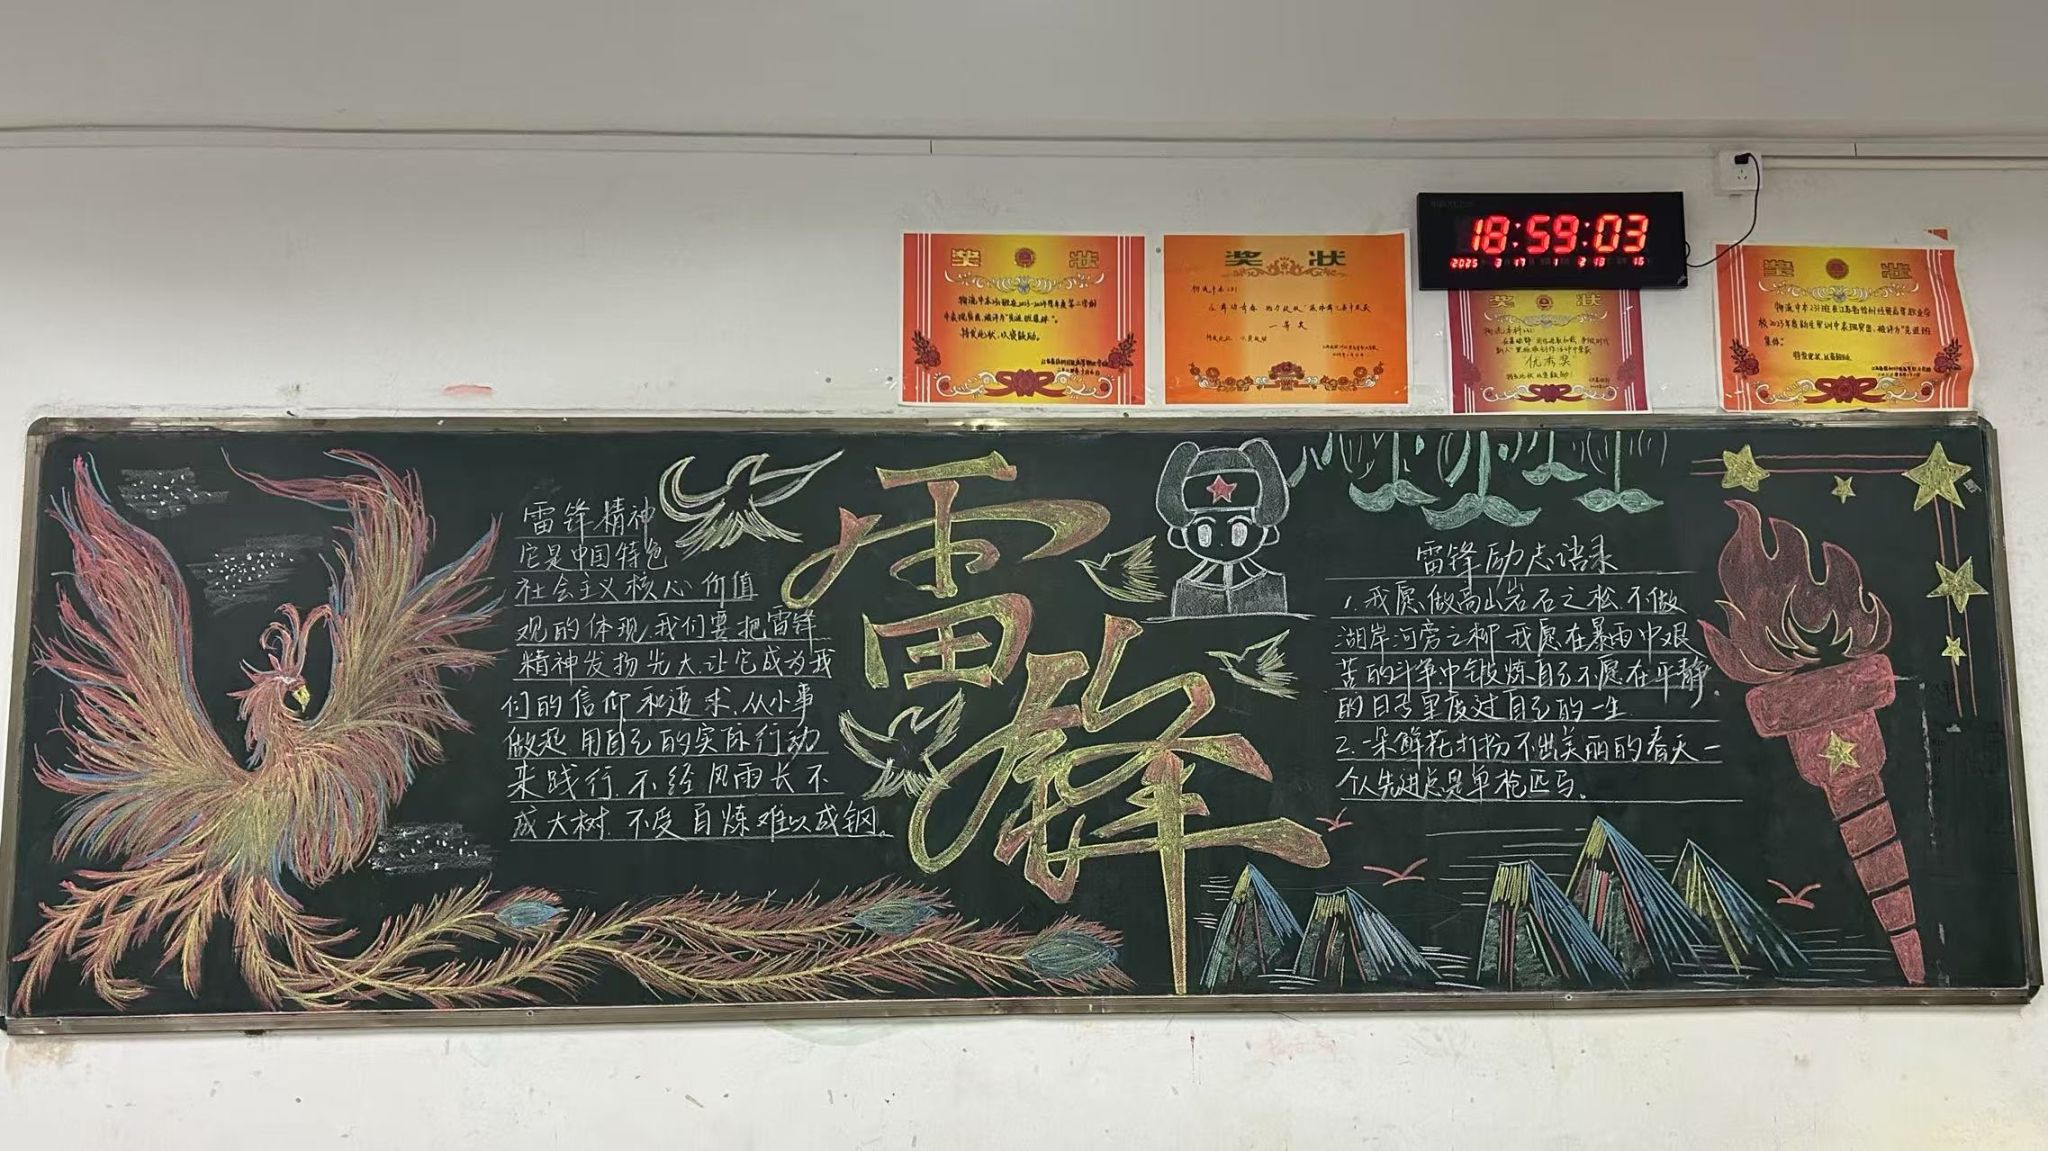 奖 状
物流中本231班在2023-2024学年度第二学期
中表现突出,被评为“先进班集体”。
特发此状,以资鼓励。
奖 状
物流中本231
一等奖
特发此证,以资鼓励
18:59:03
2025 3 17 1 2 18 16
奖 状
优秀奖
奖 状
物流中本231班在江苏省徐州经贸高等职业学
校2023年度新生军训中表现突出,被评为“先进班
集体”
特发此状,以资鼓励
雷锋精神
它是中国特色
社会主义核心价值
观的体现,我们要把雷锋
精神发扬光大,让它成为我
们的信仰和追求,从小事
做起 用自己的实际行动
来践行.不经风雨长不
成大树.不受百炼难以成钢。
雷锋
雷锋励志语录
1.我愿做高山岩石之松,不做
湖岸河旁之柳 我愿在暴雨中艰
苦的斗争中锻炼自己不愿在平静
的日子里度过自己的一生.
2.一朵鲜花打扮不出美丽的春天一
个人先进总是单枪匹马。